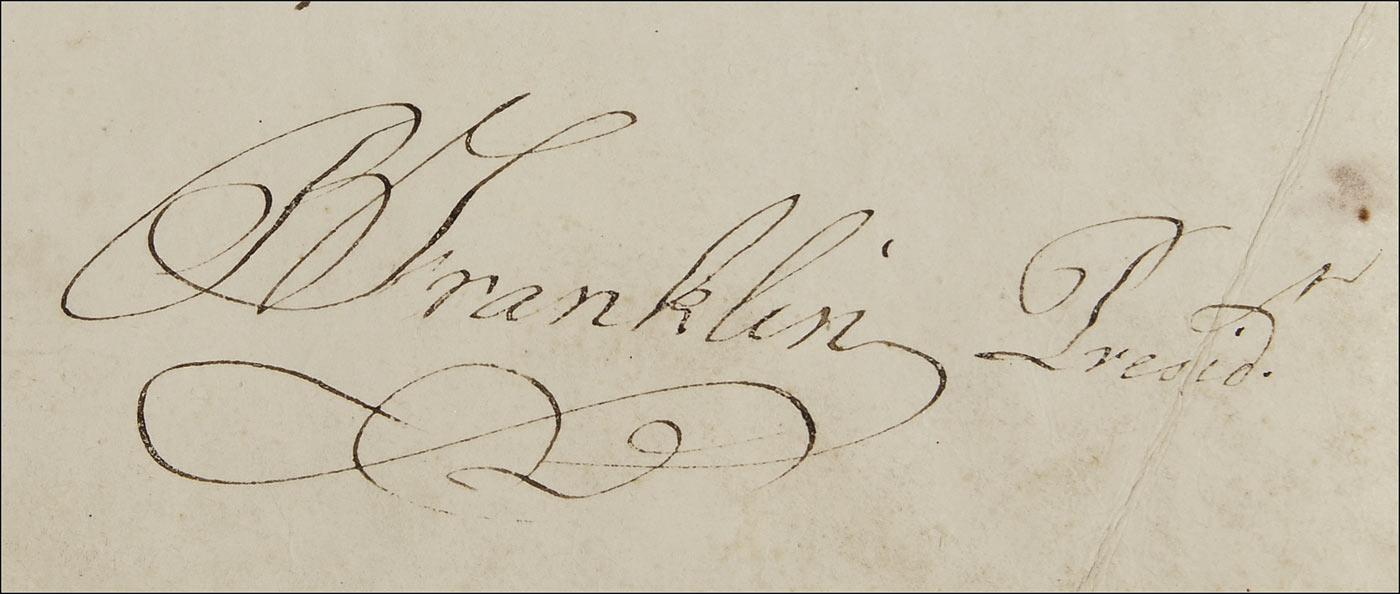 B Franklin Presid.^t